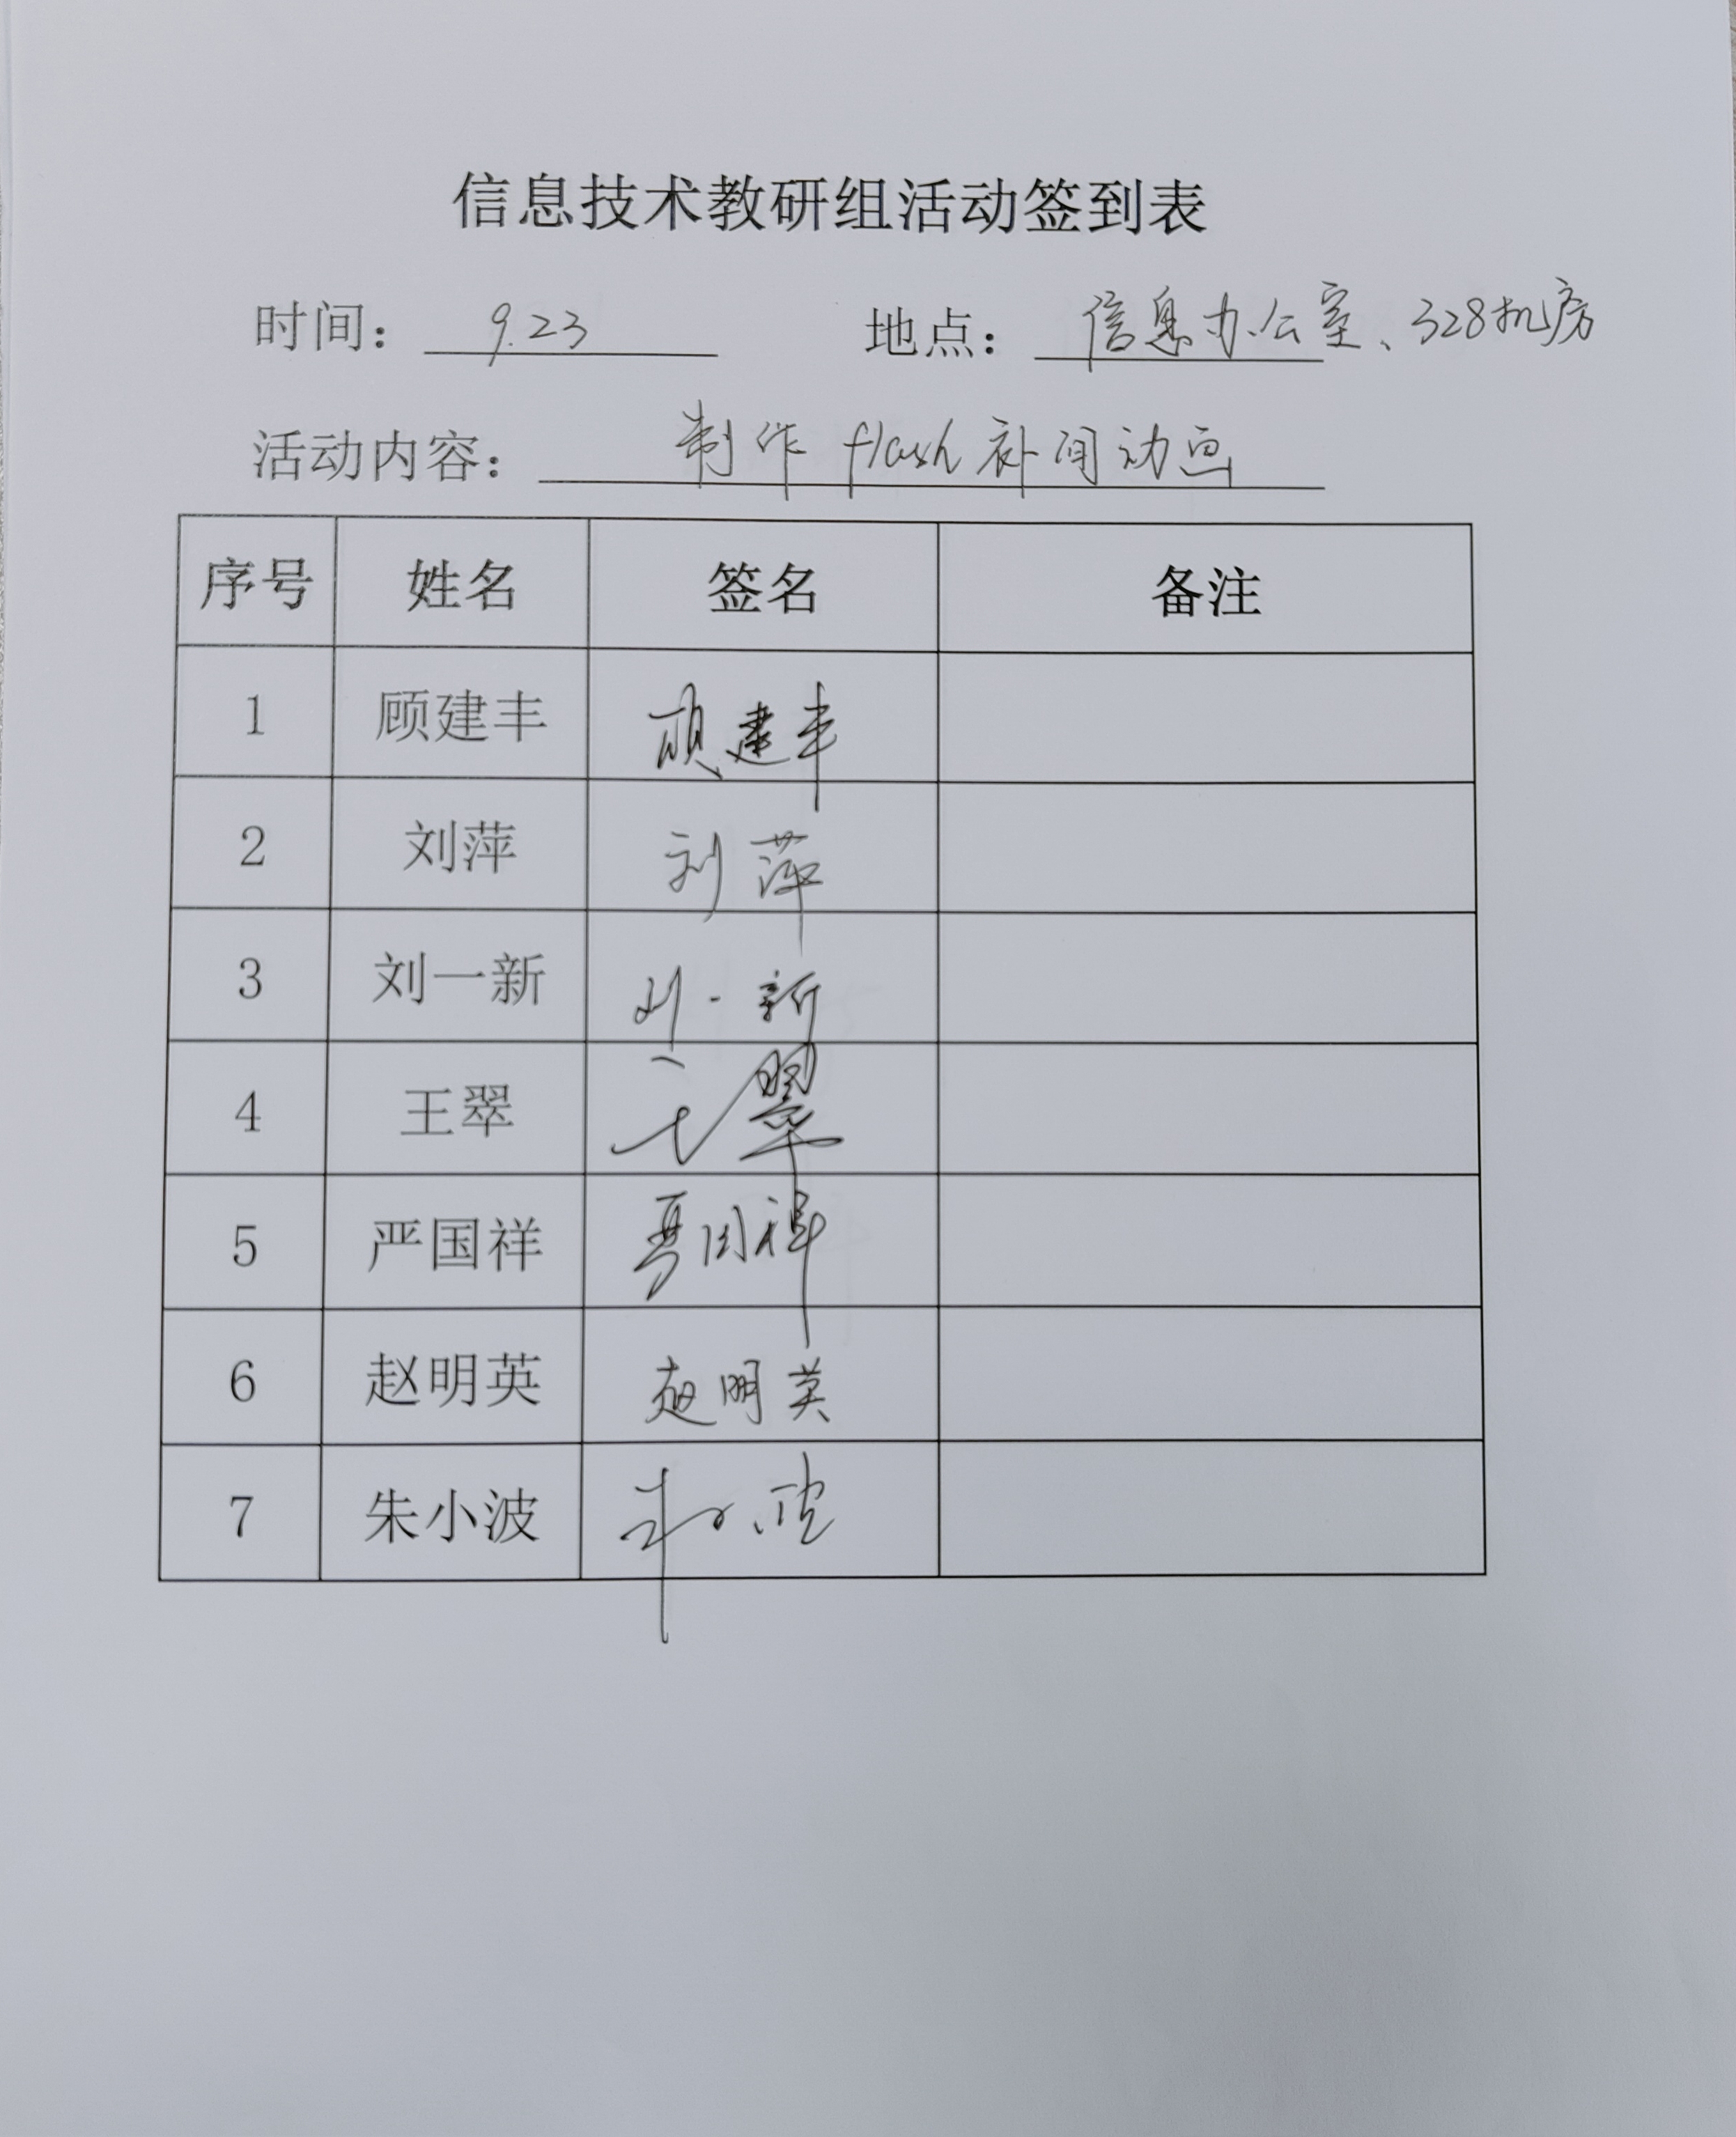 信息技术教研组活动签到表
时间： 9.23 地点： 信息办公室、328机房
活动内容： 制作flash补间动画
序号 姓名 签名 备注
1 顾建丰 顾建丰
2 刘萍 刘萍
3 刘一新 刘一新
4 王翠 王翠
5 严国祥 严国祥
6 赵明英 赵明英
7 朱小波 朱小波